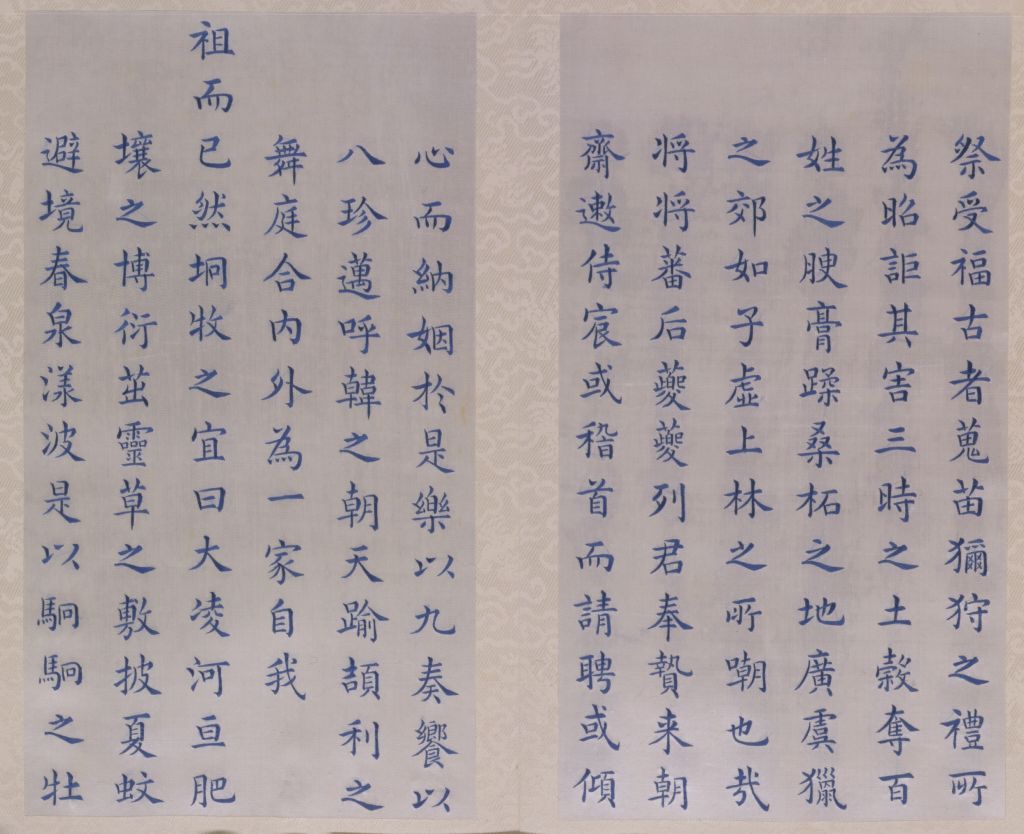 祭受福古者蒐苗獮狩之禮所
為昭詎其害三時之土穀奪百
姓之腴膏蹂桑柘之地廣虞獵
之郊如子虛上林之所嘲也哉
将将蕃后夔夔列君奉贄来朝
齋遬侍宸或稽首而請聘或傾
心而納姻於是樂以九奏饗以
八珍邁呼韓之朝天踰頡利之
舞庭合内外為一家自我
祖而已然坰牧之宜曰大凌河亘肥
壤之博衍茁靈草之敷披夏蚊
避境春泉漾波是以駉駉之牡